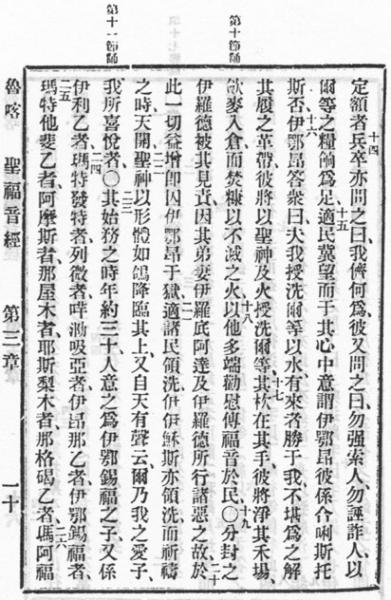 第十節誦
第十一節誦
定額者十四兵卒亦問之曰、我儕何爲、彼又問之曰、勿强索人、勿誣詐人、以
爾等之糧餉爲足、十五適民冀望、而于其心中意謂伊鄂昂彼係合唎斯托
斯否、十六伊鄂昂答衆曰、夫我授洗爾等以水、有來者勝于我、不堪爲之解
其履之革帶、彼將以聖神及火授洗爾等、十七其杴在其手、彼將淨其禾場、
歛麥入倉、而焚糠以不滅之火、十八以他多端勸慰傳福音於民、〇十九分封之
伊羅德被其見責、因其弟妻伊羅底阿達、及伊羅德所行諸惡之故、二十於
此一切益增、卽囚伊鄂昂于獄、二一適諸民領洗、伊伊穌斯亦領洗、而祈禱
之時、天開、二二聖神以形體如鴿降臨其上、又自天有聲云、爾乃我之愛子、
我所喜悅者、〇二三其始務之時、年約三十、人意之爲伊鄂錫福之子、又係
伊利乙者、二四瑪特發特者、列微者、哶勒吸亞者、伊昂那乙者、伊鄂錫福者、
二五瑪特他斐乙者、阿摩斯者、那屋木者、耶斯梨木者、那格碣乙者、二六瑪阿福
魯喀 聖福音經 第三章 一十